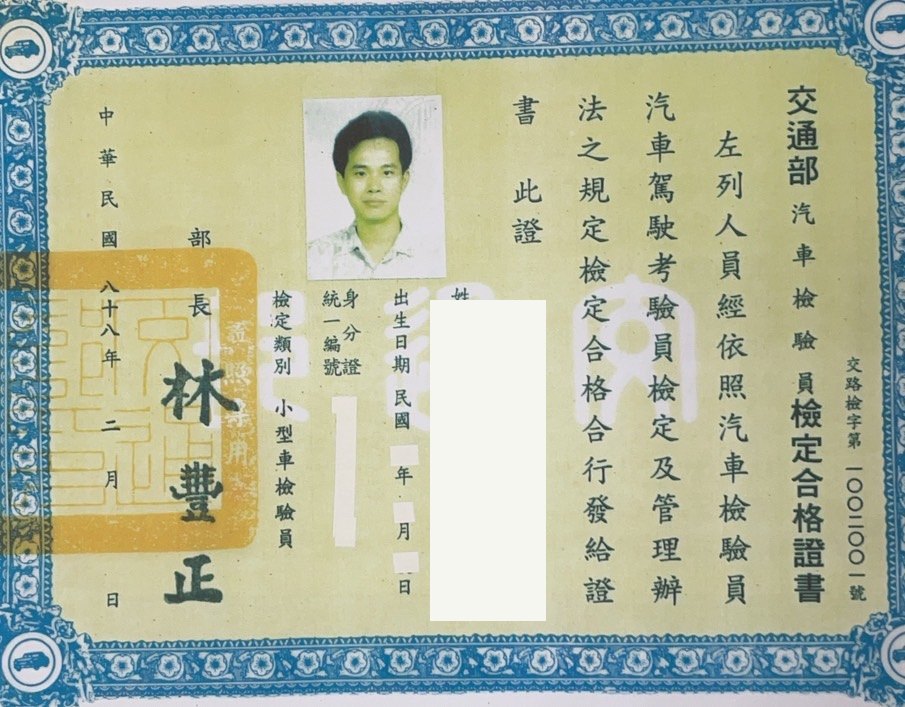 交路檢字第一〇〇二〇〇一號
交通部汽車檢驗員檢定合格證書
左列人員經依照汽車檢驗員
汽車駕駛考驗員檢定及管理辦
法之規定檢定合格合行發給證
書此證
姓
出生日期民國年月日
身分證
統一編號
檢定類別小型車檢驗員
部長林豐正
中華民國八十八年二月日